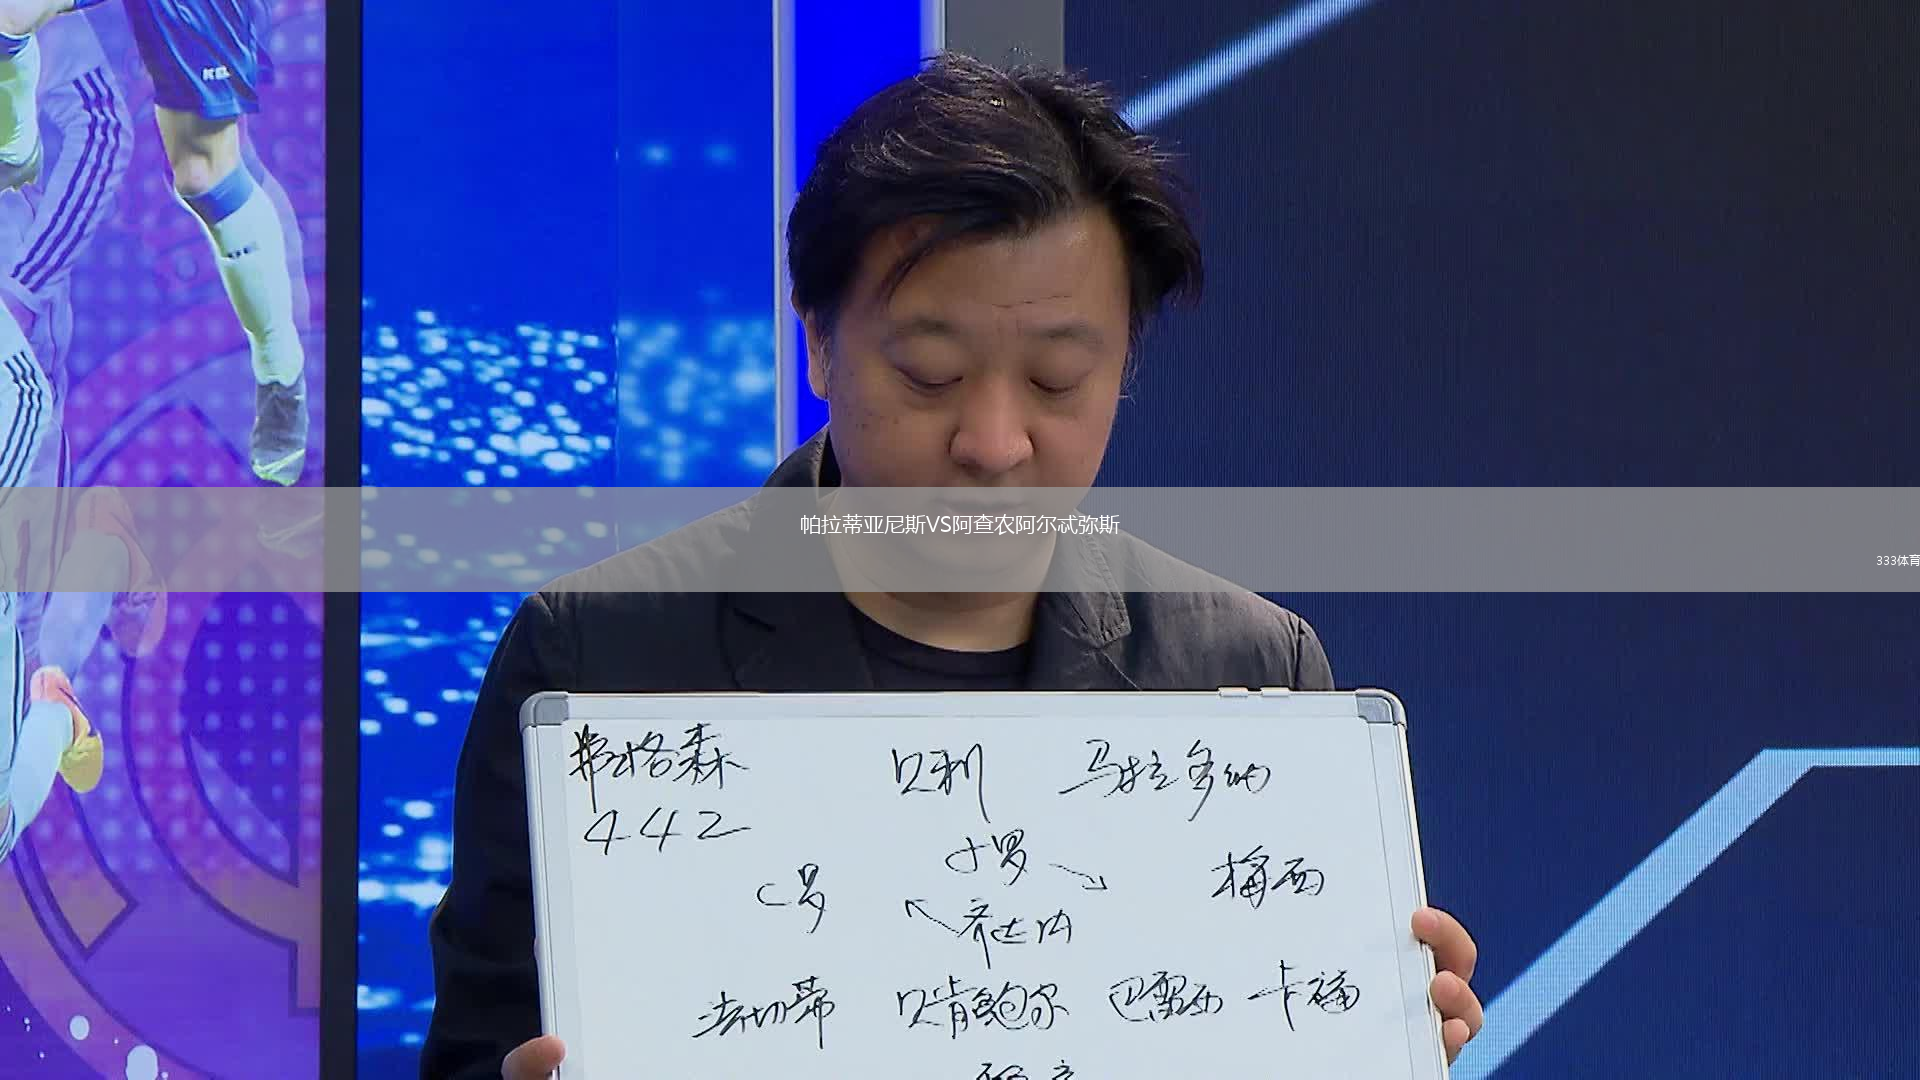 KELME
帕拉蒂亚尼斯VS阿查农阿尔忒弥斯
333体育
弗格森 贝利 马拉多纳
442
小罗
C罗 梅西
齐达内
法切蒂 贝肯鲍尔 巴雷西 卡福